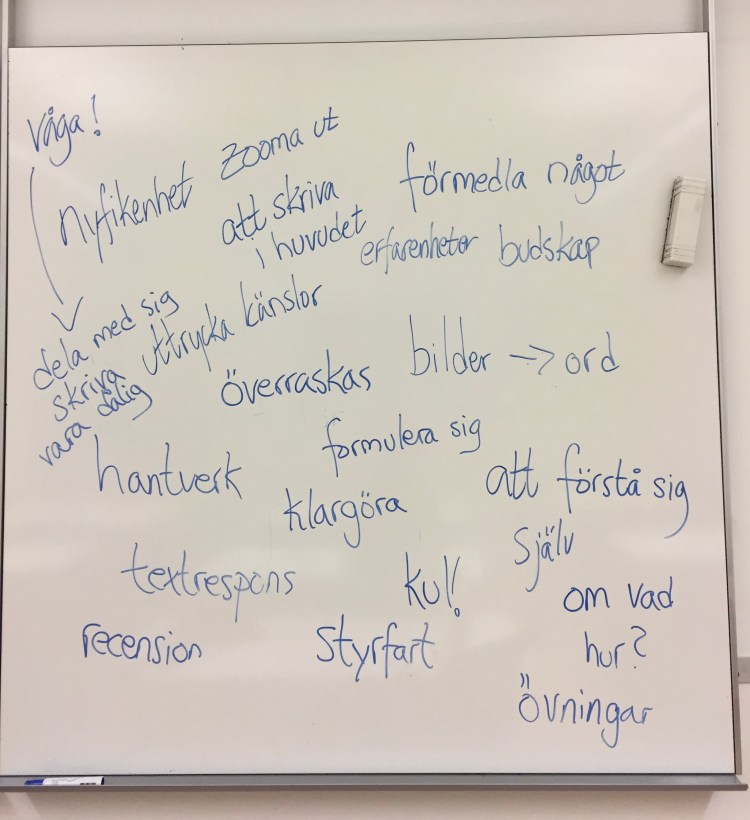 Våga!
nyfikenhet
Zooma ut
att skriva
i huvudet
förmedla något
erfarenheter budskap
dela med sig
skriva
vara dålig
uttrycka känslor
överraskas
bilder → ord
hantverk
formulera sig
klargöra
att förstå sig
själv
textrespons
kul!
om vad
hur?
recension
Styrfart
övningar